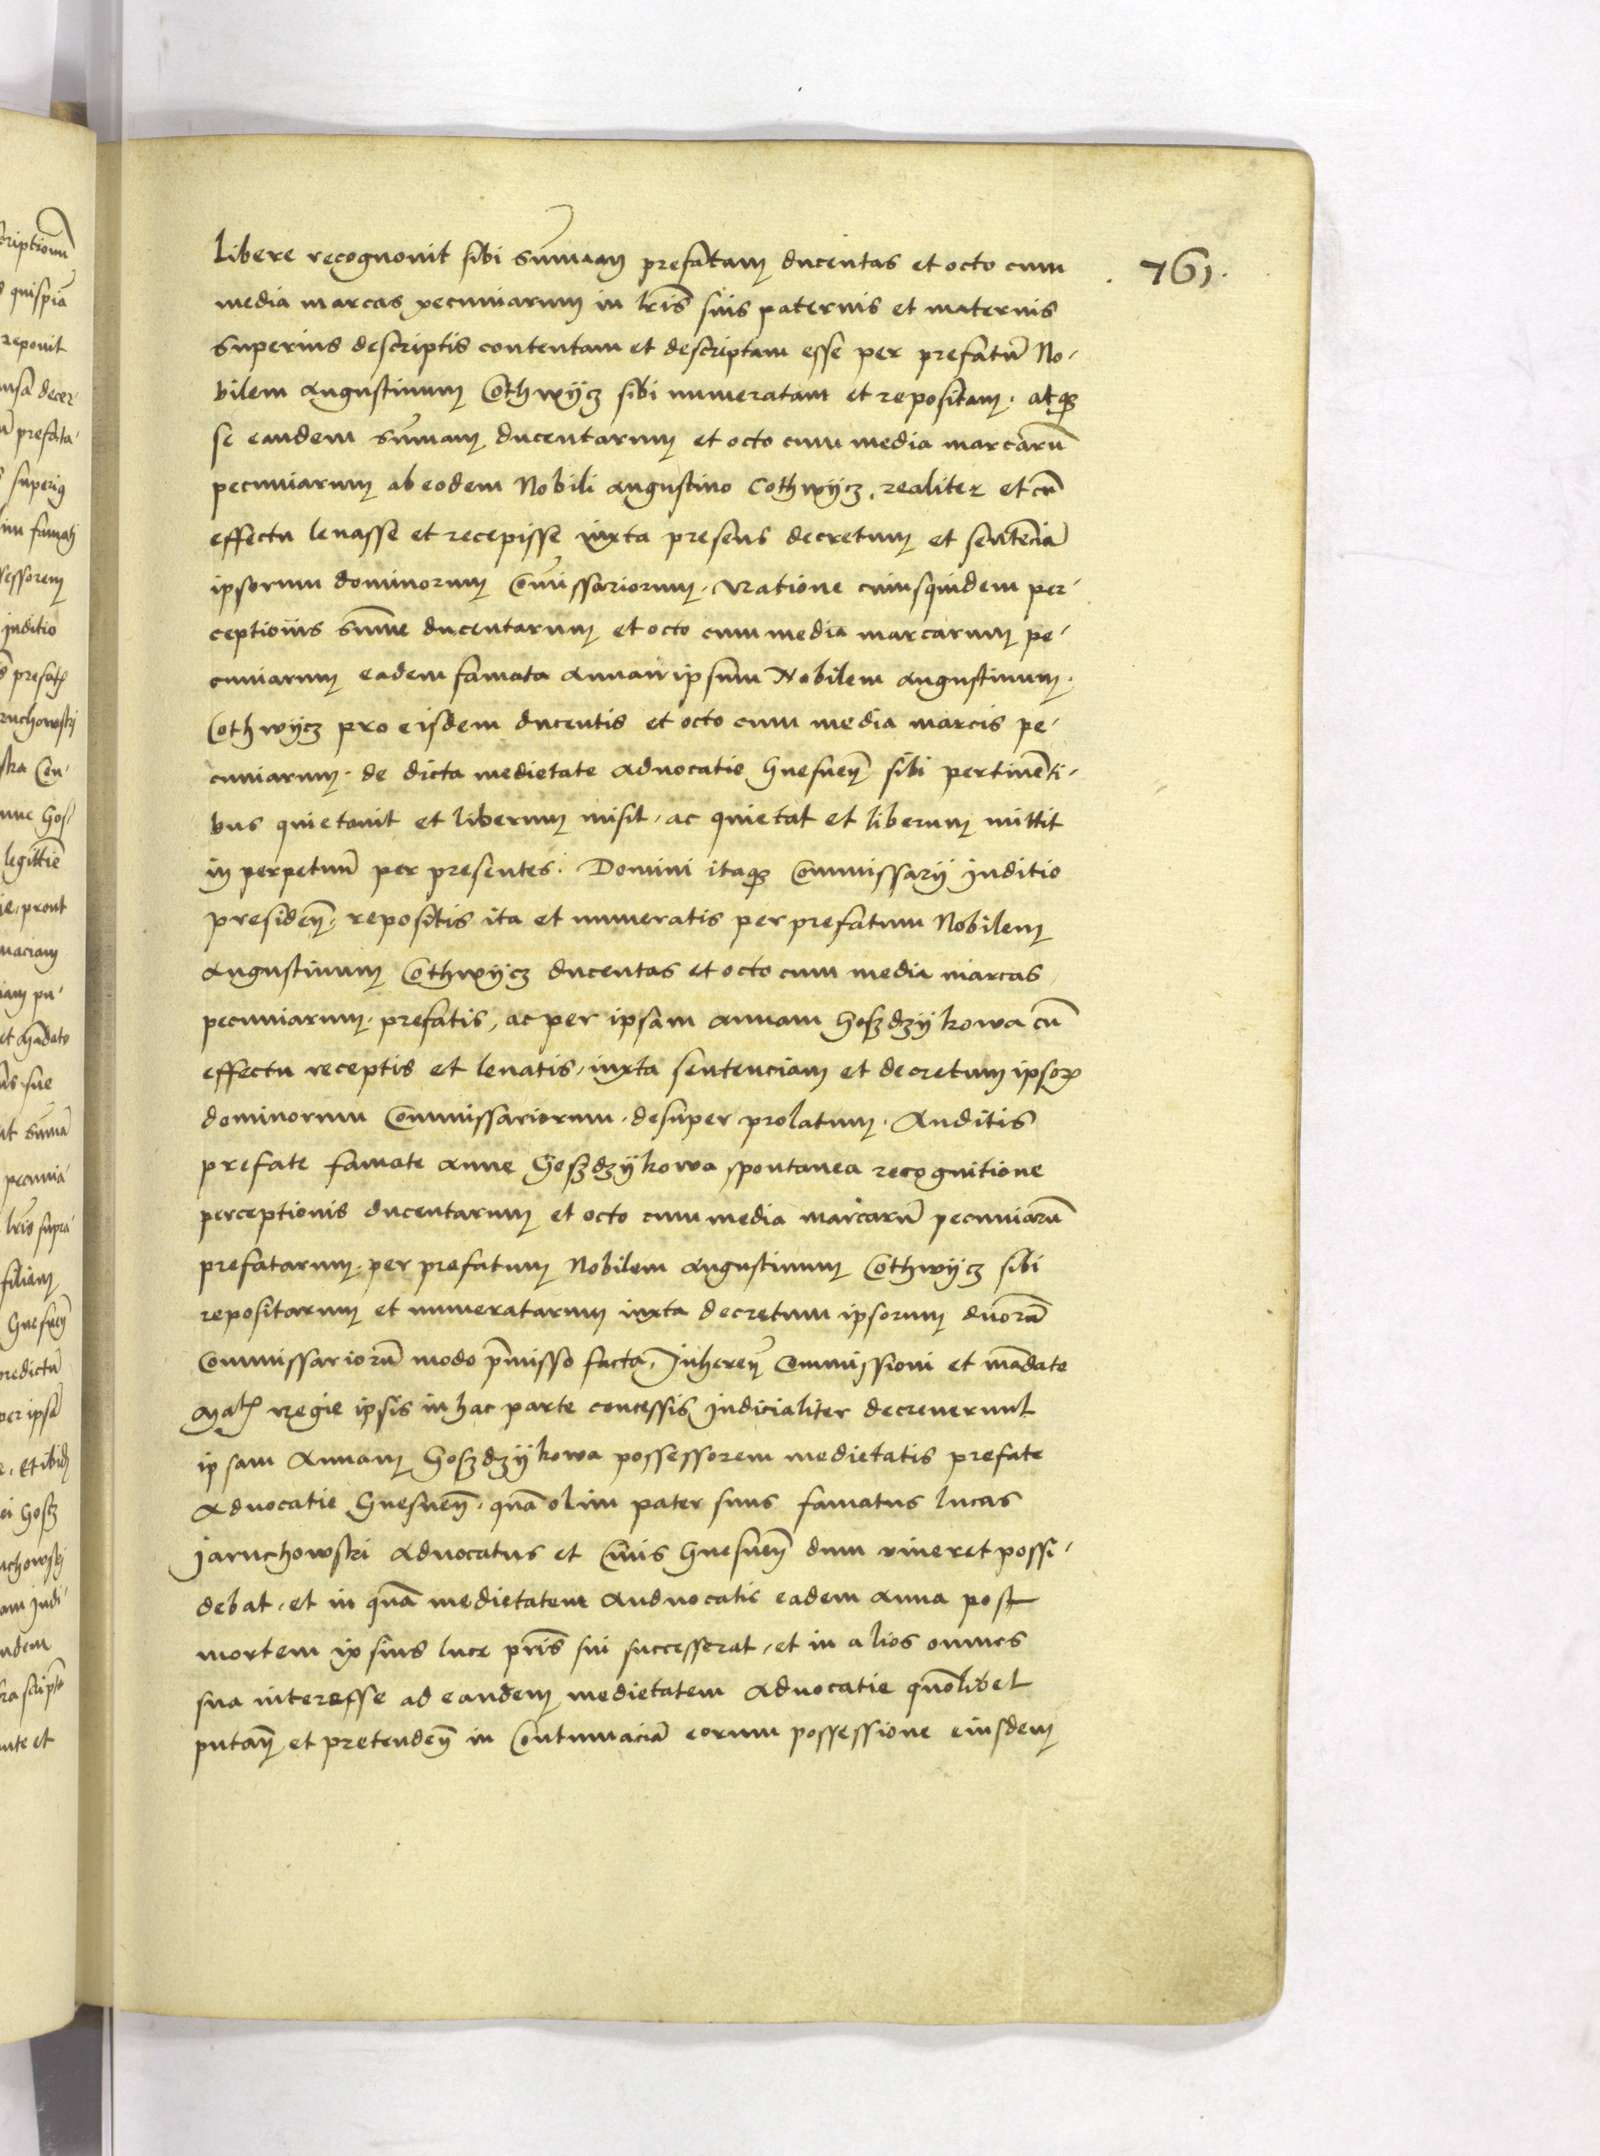 761.
libere recognovit sibi summam prefatam ducentas et octo cum
media marcas pecuniarum in lris suis paternis et maternis
superius descriptis contentam et descriptam esse per prefatū No-
bilem Augustinum Cothwycz sibi numeratam et repositam. atqz
se eandem sūmam ducentarum et octo cum media marcarū
pecuniarum ab eodem Nobili Augustino Cothwycz, realiter et cū
effectu levasse et recepisse iuxta presens decretum et sentenciā
ipsorum dominorum Cōmissariorum. Ratione cuiusquidem per-
ceptionis sūme ducentarum et octo cum media marcarum pe-
cuniarum eadem famata Anna ipsum Nobilem Augustinum
Cothwycz pro eisdem ducentis et octo cum media marcis pe-
cuniarum. de dicta medietate advocatie Gnesneñ sibi pertinēti-
bus quietavit et liberum misit, ac quietat et liberum mittit
in perpetuū per presentes. Domini itaqz Commissarii Juditio
presideñ. repositis ita et numeratis per prefatum Nobilem
Augustinum Cothwycz ducentas et octo cum media marcas
pecuniarum. prefatis, ac per ipsam Annam Goszdzykowa cū
effectu receptis et levatis, iuxta sentenciam et decretum ipsorꝝ
dominorum Commissariorum. desuper prolatum. Auditis
prefate famate Anne Goszdzykowa spontanea recognitione
perceptionis ducentarum et octo cum media marcarū pecuniarū
prefatarum. per prefatum Nobilem Augustinum Cothwycz sibi
repositarum et numeratarum iuxta decretum ipsorum dnorū
Commissariorū modo pmisso facta, Inhereñ Commissioni et mādato
Matis Regie ipsis in hac parte concessis Judicialiter decreverunt
ipsam Annam Goszdzykowa possessorem medietatis prefate
Advocatie Gnesneñ. quā olim pater suus famatus lucas
Jaruchowski Advocatus et Civis Gnesneñ dum viveret possi-
debat, et in quā medietatem Audvocatie eadem Anna post
mortem ipsius luce pris sui successerat, et in alios omnes
sua interesse ad eandem medietatem Advocatie quōlibet
putañ et pretendeñ in Contumaciā eorum possessione eiusdem